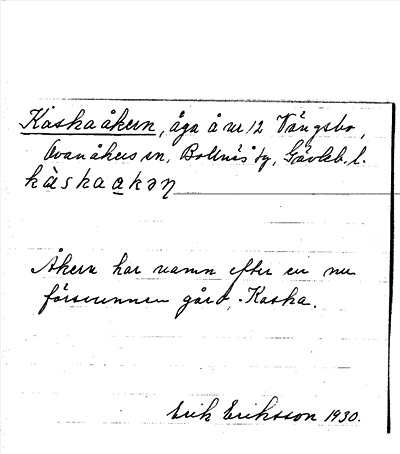 Kaskaåkern, åga å nr 12 Vängsbo,
Ovanåkers sn, Bollnäs tg, Gävleb. l.
kàskaakən
Åkern har namn efter en nu
försvunnen gård, Kaska.
Erik Eriksson 1930.